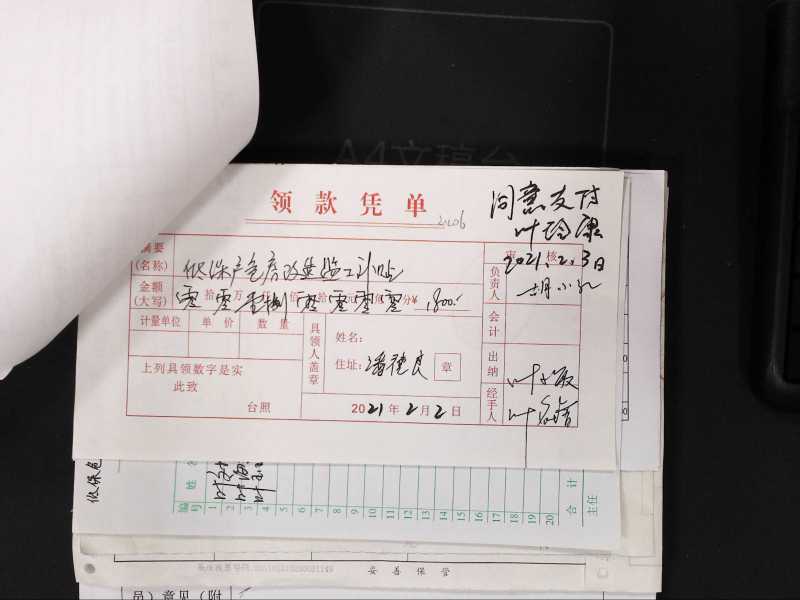 A4文稿台
领款凭单
同意支付
2021.2.3日
摘要
(名称)
低保户危房改造监工补贴
审 核
负责人
金额
(大写)
零 拾 零 万 壹 仟 捌 佰 零 拾 零 元 零 角 零 分¥ 1800.-
计量单位 单 价 数 量
具领人盖章
姓名:
会计
住址: 潘建良 章
出纳
上列具领数字是实
此致
台照
2021年2月2日
经手人
编号 姓名
1 2 3 4 5 6 7 8 9 10 11 12 13 14 15 16 17 18 19 20
合 计
主任
低保危
妥善保管
员)意见(附